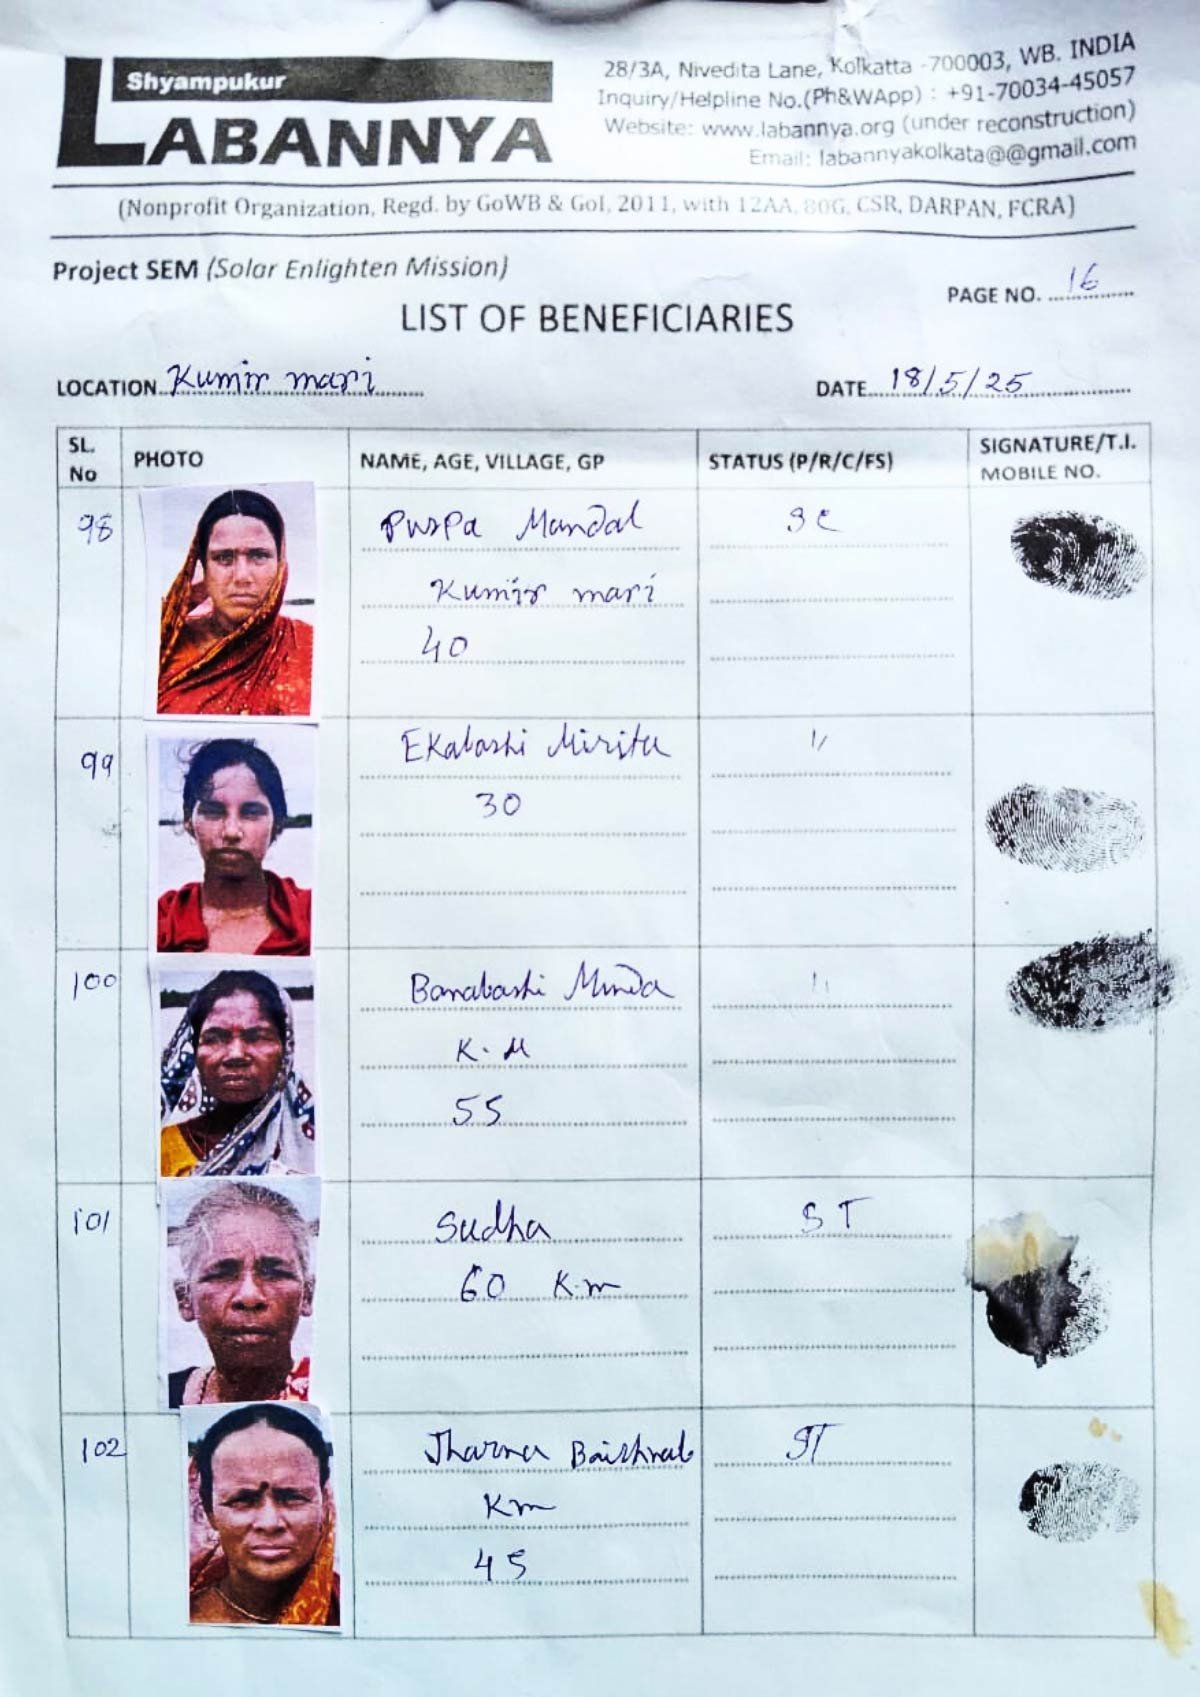 Shyampukur
LABANNYA
28/3A, Nivedita Lane, Kolkatta -700003, WB. INDIA
Inquiry/Helpline No.(Ph&WApp) : +91-70034-45057
Website: www.labannya.org (under reconstruction)
Email: labannyakolkata@@gmail.com
(Nonprofit Organization, Regd. by GoWB & GoI, 2011, with 12AA, 80G, CSR, DARPAN, FCRA)
Project SEM (Solar Enlighten Mission)
PAGE NO. 16
LIST OF BENEFICIARIES
LOCATION Kumir mari
DATE 18/5/25
SL. No
PHOTO
NAME, AGE, VILLAGE, GP
STATUS (P/R/C/FS)
SIGNATURE/T.I. MOBILE NO.
98
Puspa Mandal
Kumir mari
40
SC
99
Ekabashi
30
"
100
Banabashi Munda
K. M
55
"
101
Sudha
60 K.m
ST
102
Jharna Baishnab
Km
45
ST